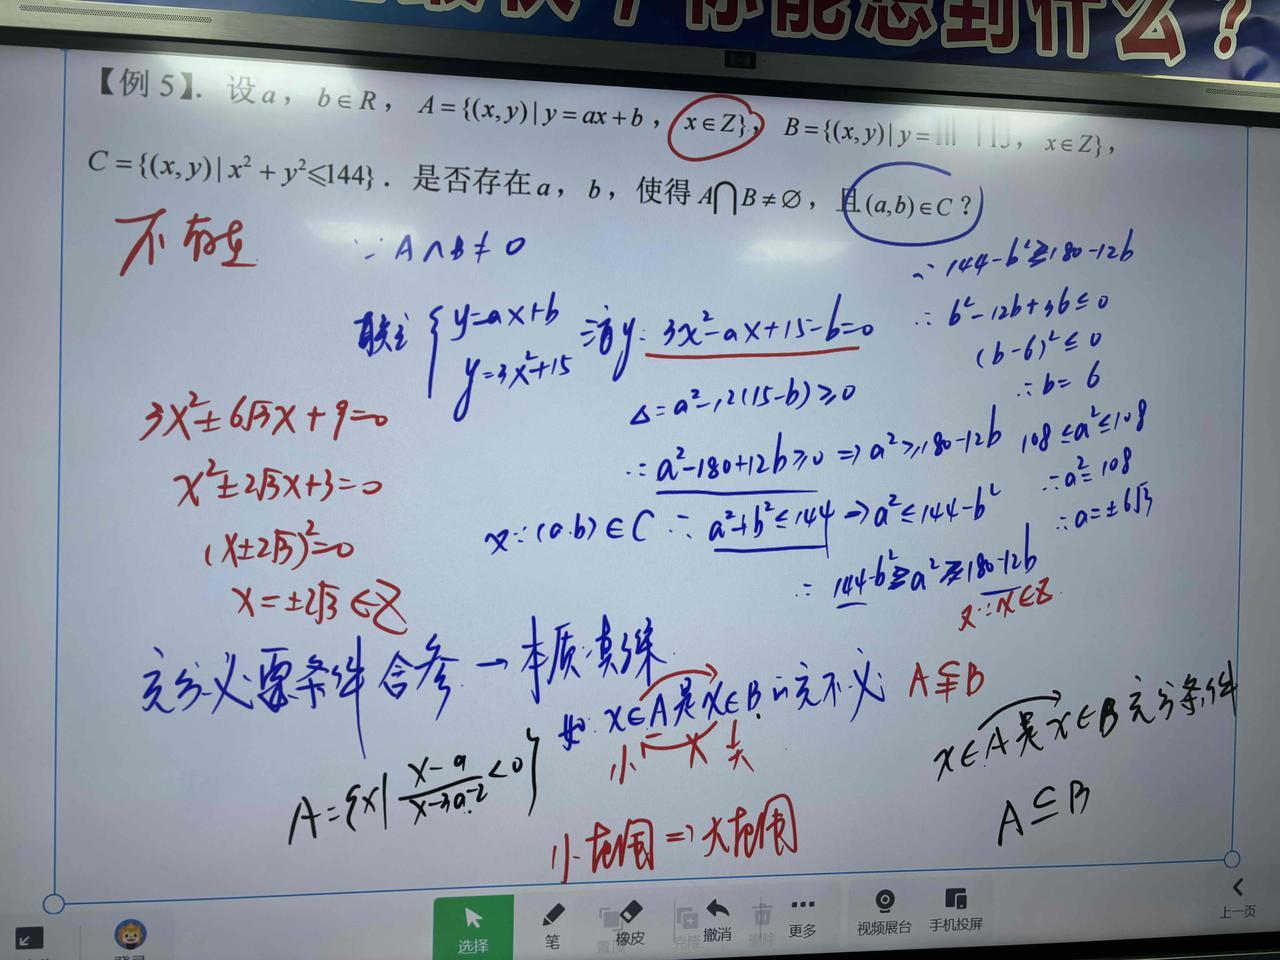 你能想到什么?
【例 5】. 设 a, b∈R, A={(x,y)|y=ax+b, x∈Z}, B={(x,y)|y= , x∈Z},
C={(x,y)|x²+y²≤144}. 是否存在 a, b, 使得 A⋂B≠∅, 且(a,b)∈C?
不存在
∵A∩B≠0
联立{y=ax+b
y=3x²+15
消y: 3x²-ax+15-b=0
Δ=a²-12(15-b)≥0
∴a²-180+12b≥0⇒a²≥180-12b
又∵(a.b)∈C ∴a²+b²≤144⇒a²≤144-b²
∴144-b²≥a²≥180-12b
∴144-b²≥180-12b
∴b²-12b+36≤0
(b-6)²≤0
∴b=6
108≤a²≤108
∴a²=108
∴a=±6√3
又∵x∈Z
3x²±6√3x+9=0
x²±2√3x+3=0
(x±2√3)²=0
x=±2√3∈Z
充分必要条件含参→本质:真练
如: x∈A是x∈B的充不必 A⫋B
小 × 大
小范围⇒大范围
A={x|x-a/x-3a-2<0}
x∈A是x∈B充分条件
A⊆B
选择
笔
橡皮
克隆
撤消
删除
更多
视频展台
手机投屏
上一页
登录